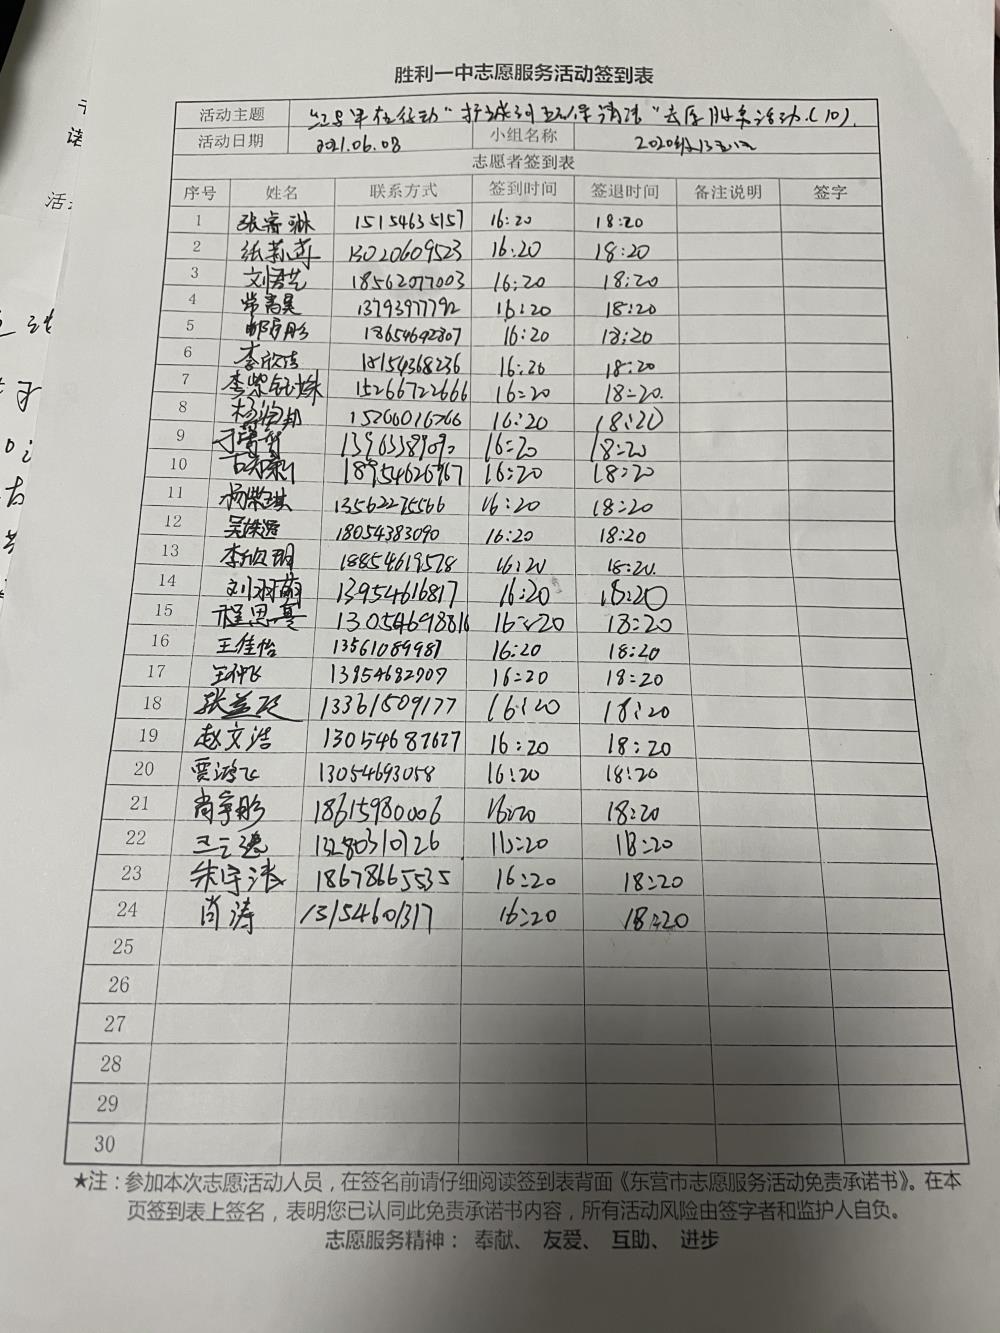 胜利一中志愿服务活动签到表
活动主题
活动日期 2021.06.08 小组名称
志愿者签到表
序号 姓名 联系方式 签到时间 签退时间 备注说明 签字
1 15154635157 16:20 18:20
2 13020609523 16:20 18:20
3 刘君艺 18562077003 16:20 18:20
4 常高昊 13793977792 16:20 18:20
5 18654692807 16:20 18:20
6 李欣洁 18154368236 16:20 18:20
7 15266722666 16:20 18:20.
8 16:20 18:20
9 16:20 18:20
10 16:20 18:20
11 杨紫琪 13562275566 16:20 18:20
12 18054383090 16:20 18:20
13 李欣玥 18854619578 16:20 18:20.
14 刘羽萌 13954616817 16:20 18:20
15 程思 13054698816 16:20 18:20
16 王佳怡 13561089981 16:20 18:20
17 16:20 18:20
18 张益 13361509177 16:20 18:20
19 赵文浩 13054687627 16:20 18:20
20 贾鸿飞 13054693058 16:20 18:20
21 肖宇彤 18615980006 16:20 18:20
22 王云逸 13280310126 16:20 18:20
23 朱宇涛 18678665535 16:20 18:20
24 肖涛 13154601317 16:20 18:20
25
26
27
28
29
30
★注：参加本次志愿活动人员，在签名前请仔细阅读签到表背面《东营市志愿服务活动免责承诺书》。在本
页签到表上签名，表明您已认同此免责承诺书内容，所有活动风险由签字者和监护人自负。
志愿服务精神： 奉献、 友爱、 互助、 进步